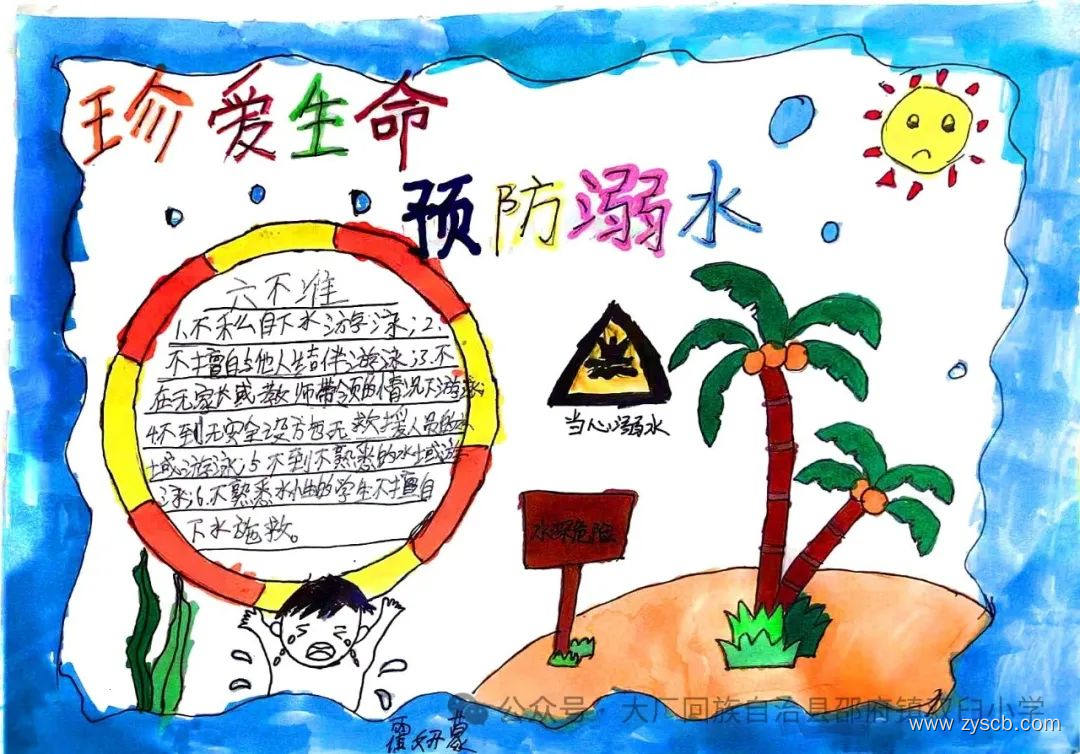 珍爱生命
预防溺水
六不准
1.不私自下水游泳;2.
不擅自与他人结伴游泳;3.不
在无家长或教师带领的情况下游泳
4不到无安全设方也无救援人员的水
域游泳;5不到不熟悉的水域游
泳;6.不熟悉水性的学生不擅自
下水施救。
当心溺水
水深危险
公众号·大厂回族自治县邵府镇
臼小学
www.zyscb.com
妍蒙